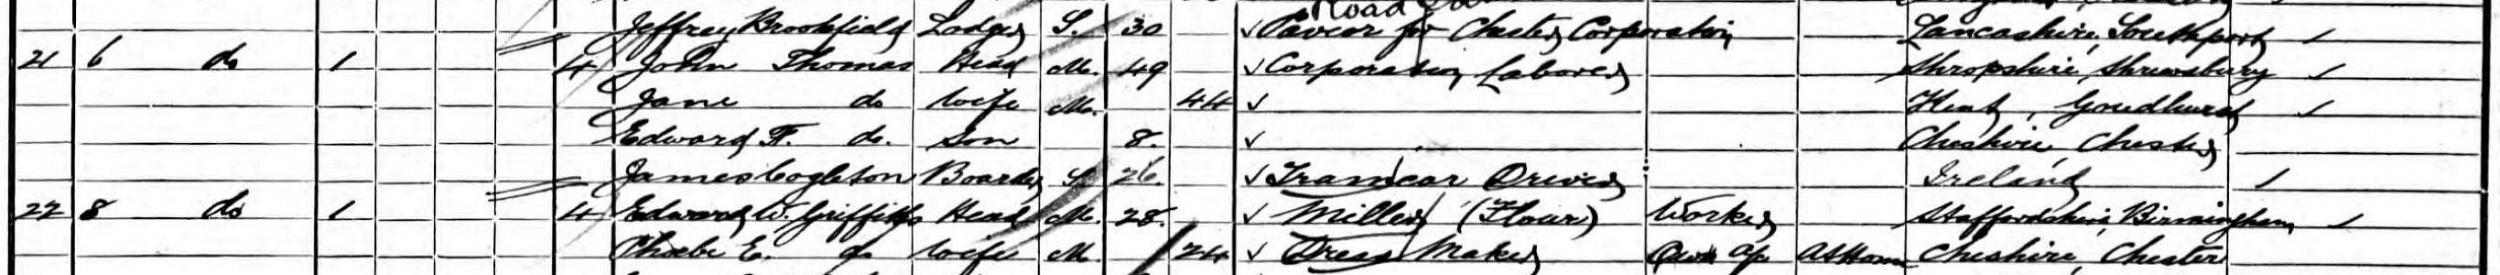 Road
Jeffrey Brookfield Lodger S. 30 Pavior for Chester Corporation Lancashire, Southport
21 6 do 1 4 John Thomas Head M. 49 Corporation Laborer Shropshire, Shrewsbury
Jane do wife M. 44 Kent, Goudhurst
Edward F. do. Son 8. Cheshire, Chester
James Cogleton Boarder S. 26. Tramcar Driver Ireland
22 8 do 1 4 Edward W. Griffiths Head M. 28. Miller (Flour) Worker Staffordshire, Birmingham
Phoebe E. do wife M. 24 Dress Maker Own ap At Home Cheshire, Chester